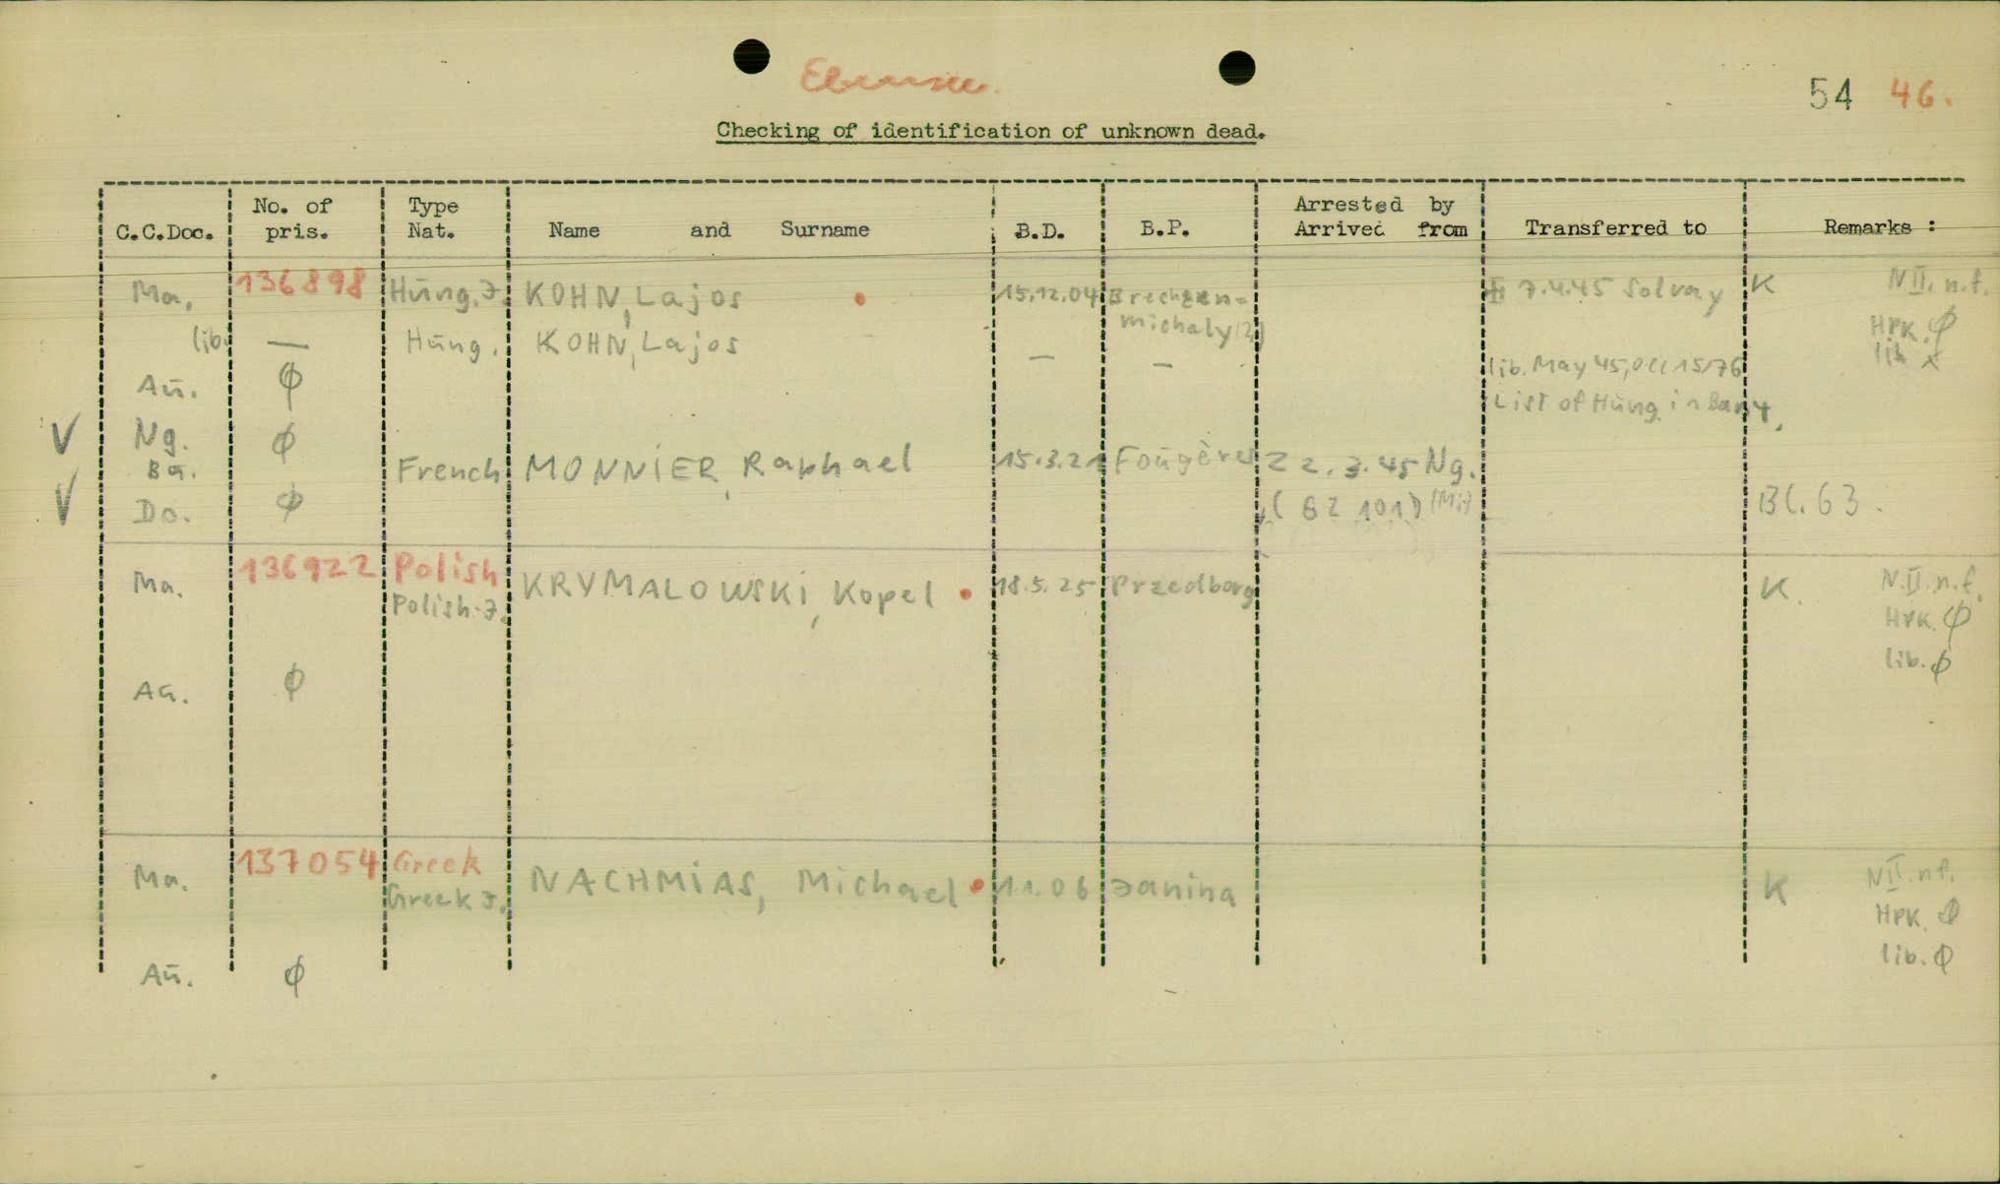 Ebensee.
54 46.
Checking of identification of unknown dead.
C.C.Doc. No. of pris. Type Nat. Name and Surname B.D. B.P. Arrested by Arrived from Transferred to Remarks :
Ma. 136898 Hūng.J. KOHN, Lajos 15.12.04 7.4.45 Solvay K NII. n.f.
michaly HPK. ϕ
lib. — Hūng. KOHN, Lajos — — lib x
Aū. ϕ lib. May 45, Occ 15/76
List of Hūng. in Bavy.
V Ng. ϕ
Bū. French MONNIER, Raphael 15.3.21 Foūgères 22.3.45 Ng.
V Da. ϕ (BZ 101) Bl. 63.
Ma. 136922 Polish KRYMALOWSKI, Kopel 18.5.25 Przedborg K. N.II. n.f.
Polish-J. HPK. ϕ
lib. ϕ
Aū. ϕ
Ma. 137054 Greek NACHMIAS, Michael 11.06 Janina K NII. nf.
Greek J. HPK. ϕ
lib. ϕ
Aū. ϕ